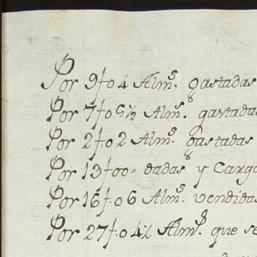 Por 9f04 Alm.s gastadas
Por 7f05½ Alm.s gastadas
Por 2f02 Alm.s gastadas
Por 13f00 dadas y Carga
Por 16f06 Alm.s vendidas
Por 27f04½ Alm.s que se